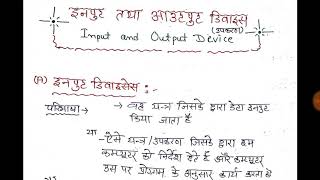 इनपुट तथा आउटपुट डिवाइस
(उपकरण)
Input and Output Device
(A) इनपुट डिवाइसेस :-
परिभाषा → वह यन्त्र जिसके द्वारा डेटा इनपुट
किया जाता है
या
- ऐसे यन्त्र/उपकरण जिसके द्वारा हम
कम्प्यूटर को निर्देश देते हैं और कम्प्यूटर
उस पर प्रोग्राम के अनुसार कार्य करता है